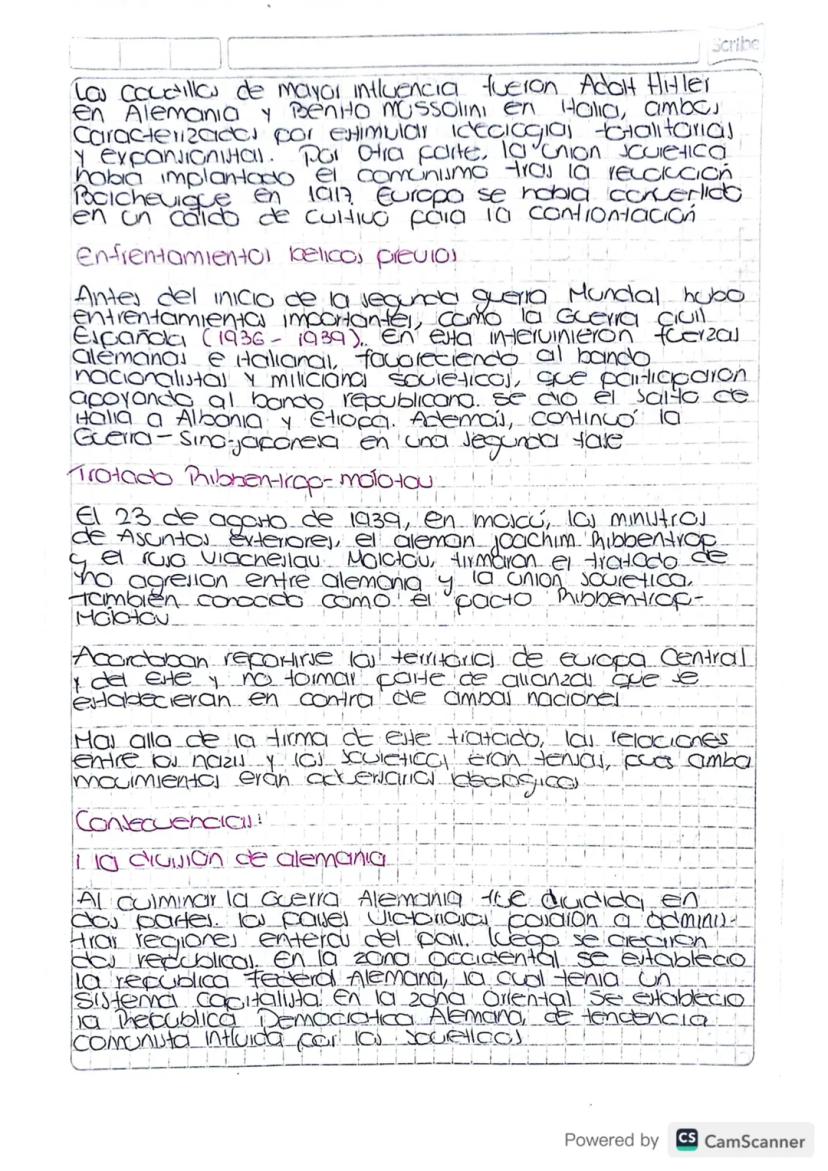 Scribe
Los caudillos de mayor influencia fueron Adolf Hitler
en Alemania y Benito Mussolini en Italia, ambos
Caracterizados por estimular ideologías totalitarias
y expansionistas. Por otra parte, la unión soviética
había implantado el comunismo tras la revolución
Bolchevique en 1917. Europa se había convertido
en un caldo de cultivo para la confrontación
Enfrentamientos bélicos previos
Antes del inicio de la segunda guerra Mundial hubo
enfrentamientos importantes, como la Guerra civil
Española (1936 - 1939). En esta intervinieron fuerzas
alemanas e italianas, favoreciendo al bando
nacionalistas y milicianos soviéticos, que participaron
apoyando al bando republicano. se dio el salto de
Italia a Albania y Etiopa. Además, continuó la
Guerra-Sino-japonesa en una segunda fase
Tratado Ribbentrop-molotov
El 23 de agosto de 1939, en moscú, los ministros
de Asuntos exteriores, el alemán Joachim Ribbentrop
y el ruso Viacheslav Molotov, firmaron el tratado de
no agresión entre alemania y la unión soviética.
también conocido como el pacto Ribbentrop-
Molotov
Acordaban repartirse los territorios de europa Central
y del este y no formar parte de alianzas que se
establecieran en contra de ambas naciones
Mas alla de la firma de este tratado, las relaciones
entre los nazis y los soviéticos eran tensas, pues amba
movimientos eran adversarios ideológicos
Consecuencias:
1. la división de alemania
Al culminar la Guerra Alemania fue dividida en
dos partes. los países victoriosos pasaron a adminis-
trar regiones enteras del país. luego se crearon
dos repúblicas. En la zona occidental se estableció
la república Federal Alemana, la cual tenía un
sistema capitalista. En la zona Oriental se estableció
la República Democrática Alemana, de tendencia
comunista influida por los soviéticos
Powered by CS CamScanner